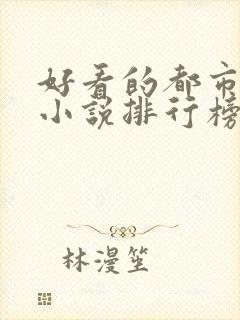 好看的都市
小说排行榜
林漫笙